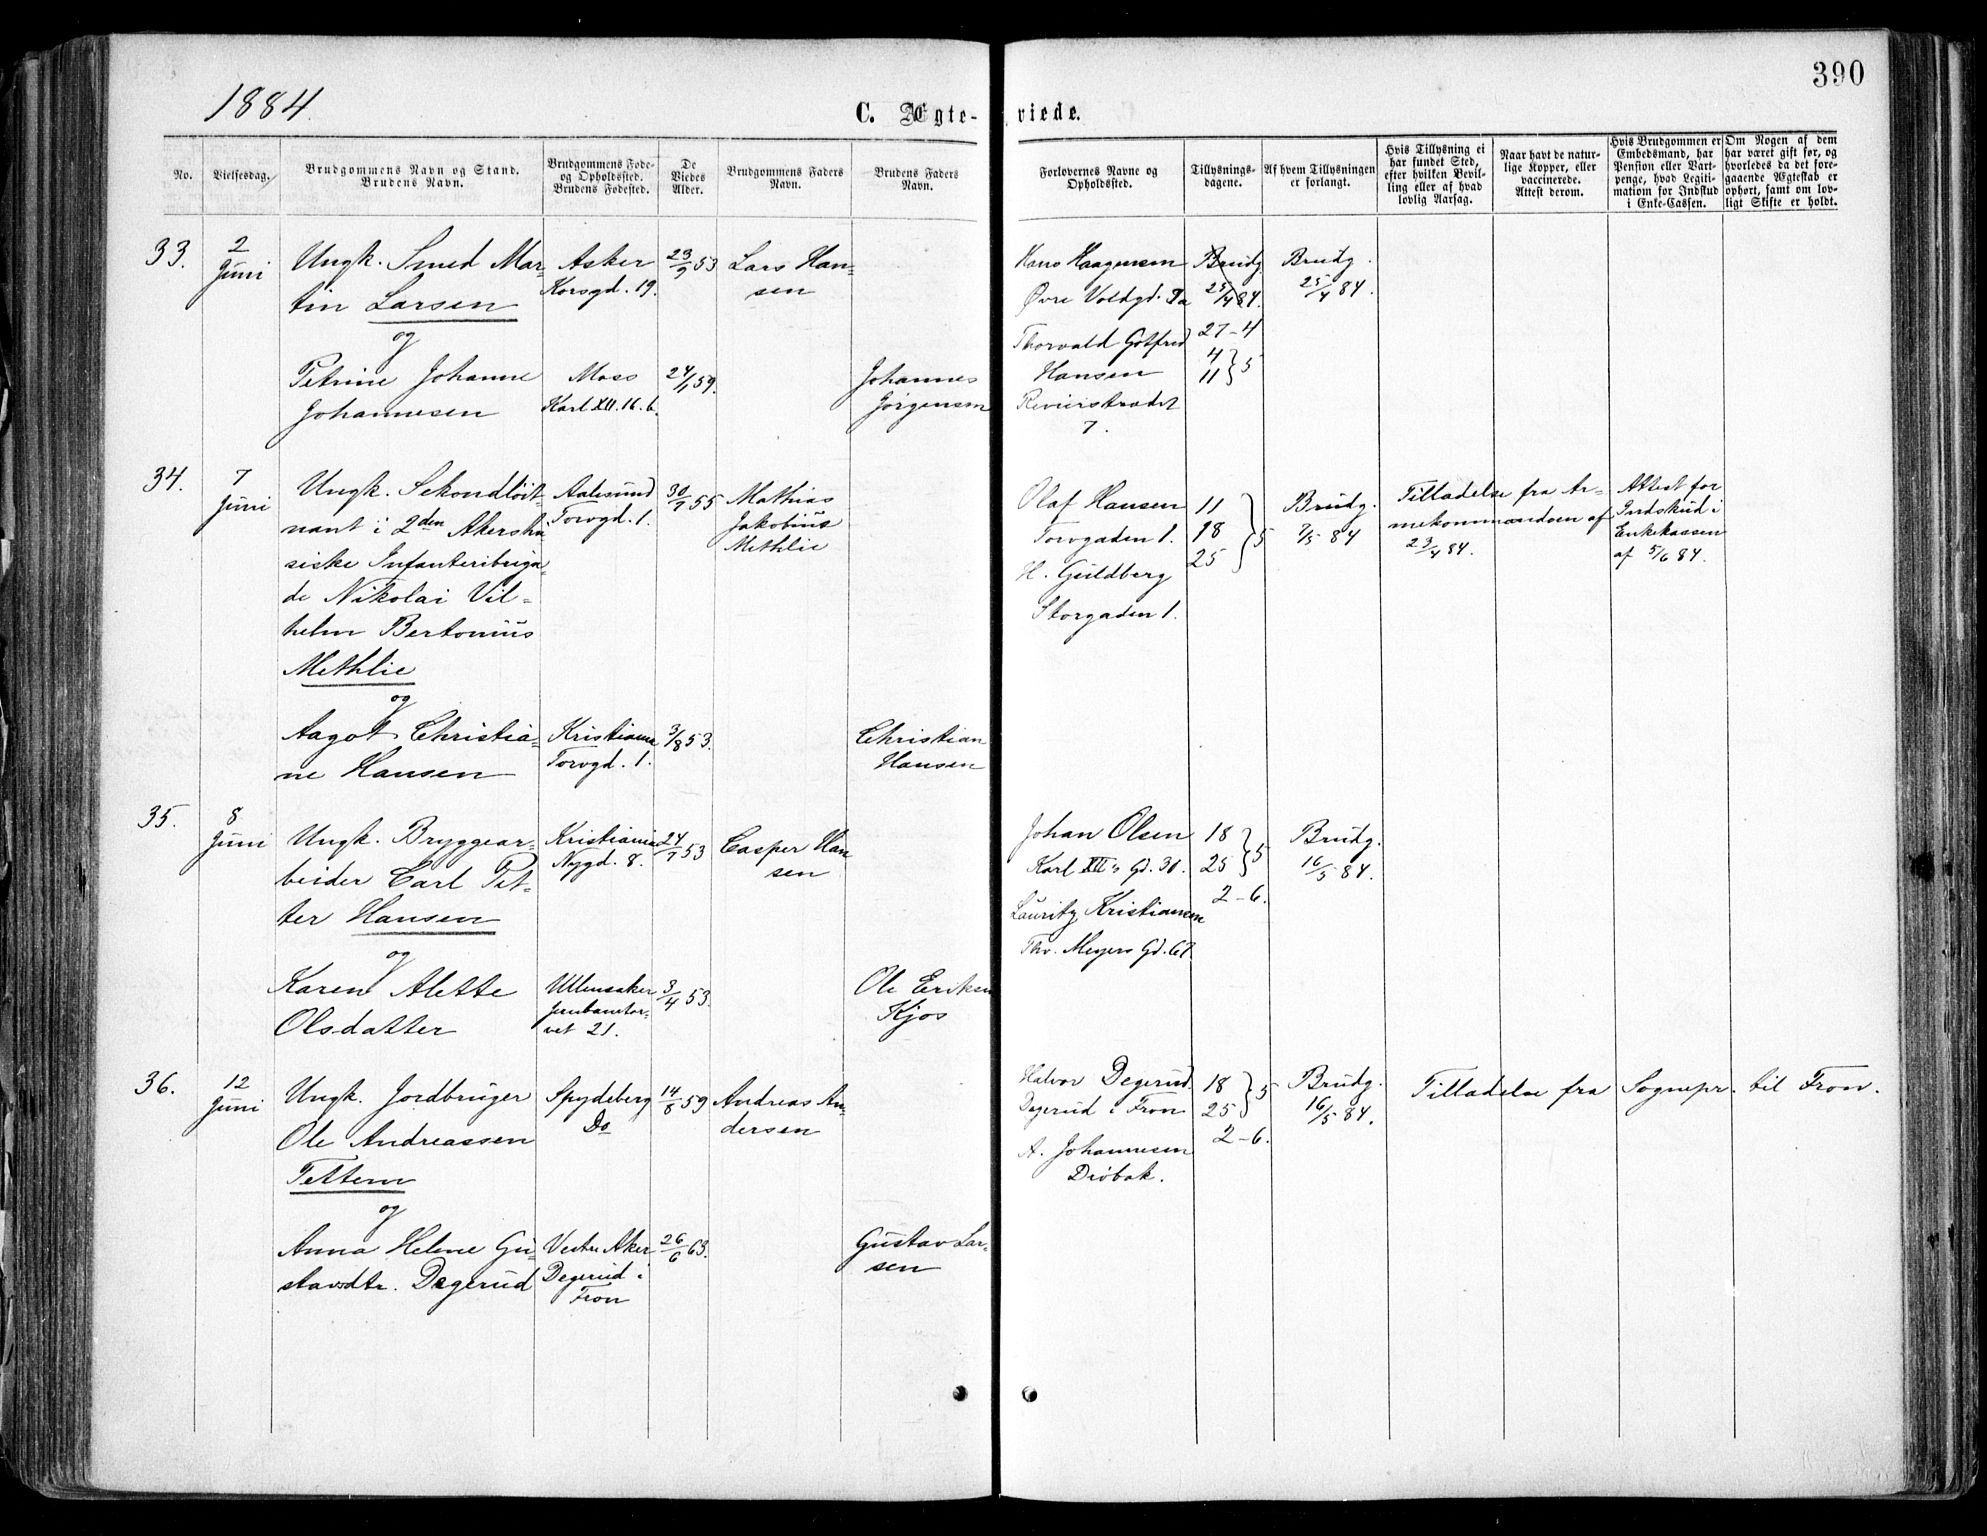 390
1884.
C. Ægte-viede.
No.
Vielsesdag.
Brudgommens Navn og Stand.
Brudens Navn.
Brudgommens Føde- og Opholdssted.
Brudens Fødested.
De Viedes Alder.
Brudgommens Faders Navn.
Brudens Faders Navn.
Forlovernes Navne og Opholdssted.
Tillysningsdagene.
Af hvem Tillysningen er forlangt.
Hvis Tillysning ei har fundet Sted, efter hvilken Bevilling eller af hvad lovlig Aarsag.
Naar havt de naturlige Kopper, eller vaccinerede. Attest derom.
Hvis Brudgommen er Embedsmand, har Pension eller Vartpenge, hvad Legitimation for Indskud i Enke-Cassen.
Om Nogen af dem har været gift før, og hvorledes da det foregaaende Ægteskab er ophørt, samt om lovligt Skifte er holdt.
33.
2
Juni
Ungk. Smed Mar-
tin Larsen
og
Petrine Johanne
Johannesen
Asker
Korsgd. 19.
Moss
Karl XII. 16. b.
23/9 53
24/1 59.
Lars Han-
sen
Johannes
Jörgensen
Hans Haagensen
Øvre Voldgd. 7a
Thorvald Gotfred
Hansen
Revierstrædet
7.
Brudg.
25/4 84.
27-4
4
11 } 5
Brudg.
25/4 84.
34.
7
Juni
Ungk. Sekondlöit-
nant i 2den Akershu
siske Infanteribriga-
de Nikolai Vil-
helm Bertonius
Methlie
og
Aagot Christia-
ne Hansen
Aalesund
Torvgd. 1.
Kristiania
Torvgd. 1.
30/7 55
3/8 53.
Mathias
Jakobius
Methlie
Christian
Hansen
Olaf Hansen
Torvgaden 1.
H. Guldberg
Storgaden 1.
11
18
25 } 5
Brudg.
7/5 84
Tilladelse fra Ar-
mekommandoen af
23/4 84.
Attest for
Indskud i
Enkekassen
af 5/6 84.
35.
8
Juni
Ungk. Bryggear-
beider Carl Pet-
ter Hansen
og
Karen Alette
Olsdatter
Kristiania
Nygd. 8.
Ullensaker
Jernbanetor-
vet 21.
24/7 53
3/4 53.
Casper Han
sen
Ole Eriksen
Kjos
Johan Olsen
Karl XII's Gd. 30.
Lauritz Kristiansen
Thv. Meyers Gd. 67
18
25 } 5
2-6.
Brudg.
16/5 84.
36.
12
Juni
Ungk. Jordbruger
Ole Andreassen
Tettern
og
Anna Helene Gu-
stavsdtr. Degerud
Spydeberg
Do
Vestre Aker
Degerud i
Fron
14/8 59
26/6 63.
Andreas An-
dersen
Gustav Lar-
sen
Halvor Degerud.
Degerud i Fron
A. Johannesen
Dröbak.
18
25 } 5
2-6.
Brudg.
16/5 84.
Tilladelse fra Sognepr. til Fron.